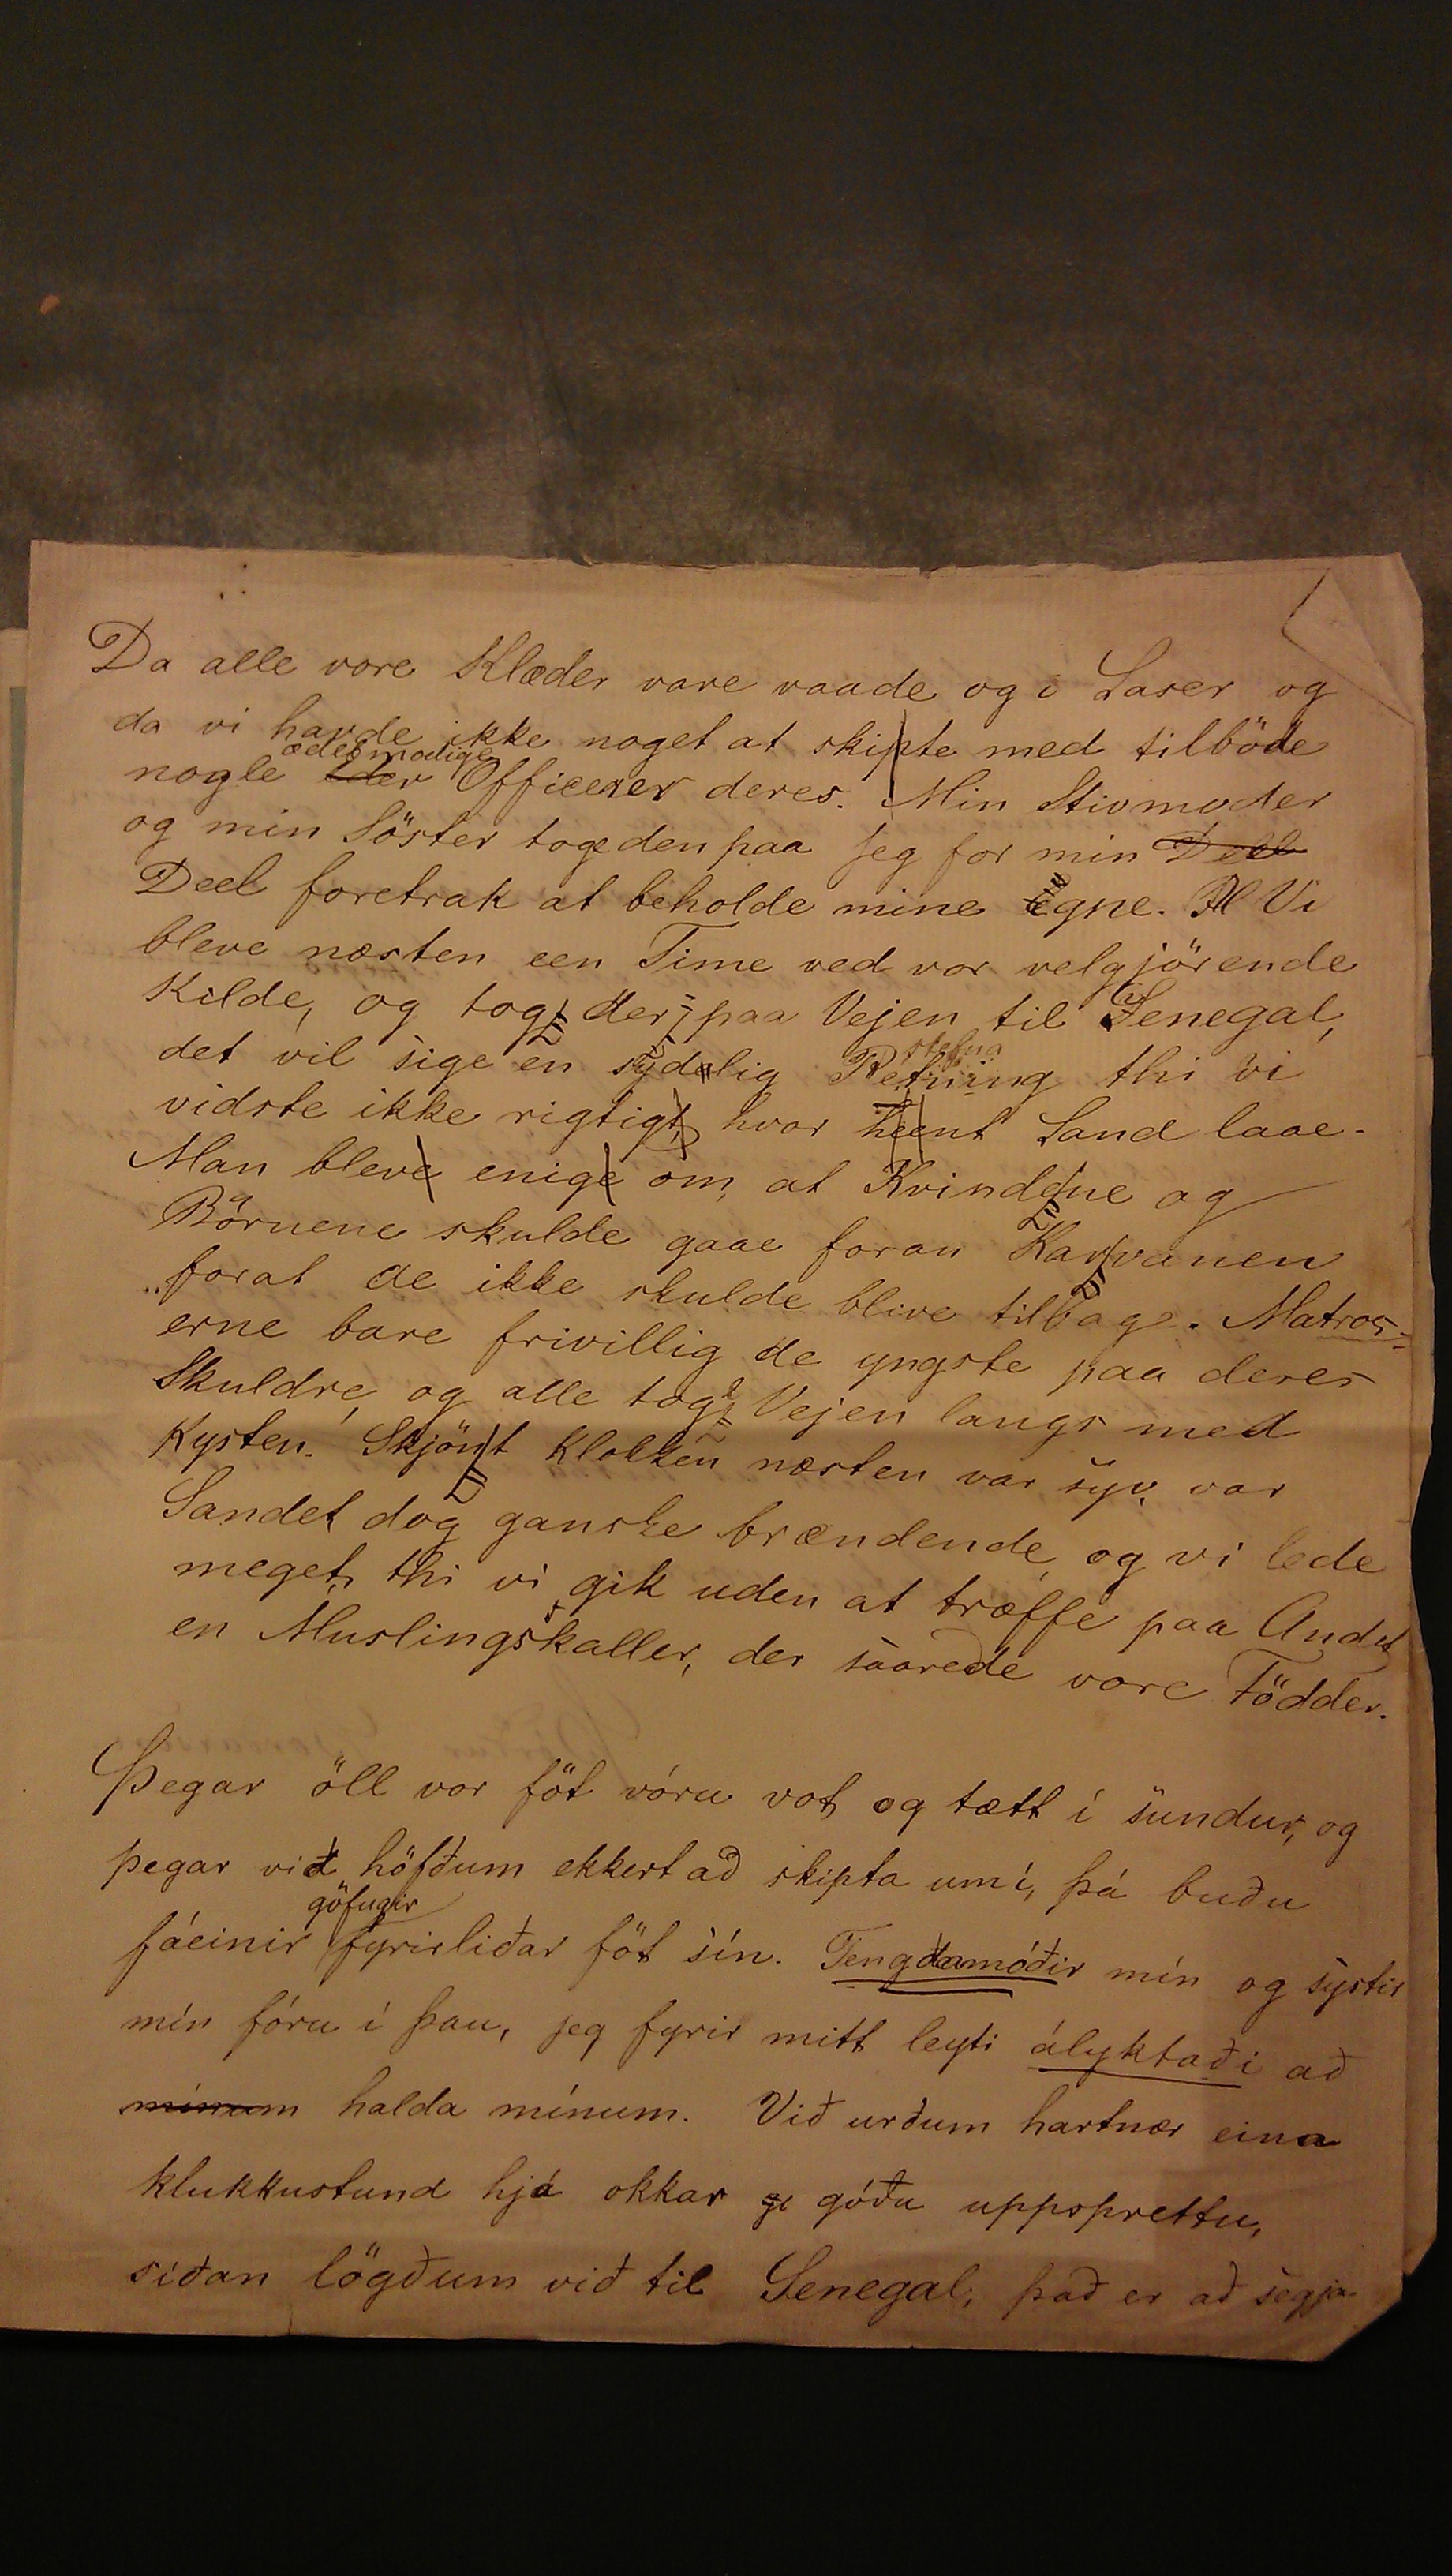 Da alle vore Klæder vare vaade og i Laser og
da vi havde ikke noget at skipte med tilböde
nogle ædelmodige Officerer deres. Min Stivmoder
og min Söster toge den paa jeg for min Deel
Deel foretrak at beholde mine egne. Vi
bleve næsten een Time ved vor velgjörende
Kilde, og tog der paa Vejen til Senegal,
det vil sige en sydelig Retning stefna thi vi
vidste ikke rigtigt, hvor heent Land laae.
Man bleve enige om, at Kvinderne og
Börnene skulde gaae foran Karvanen
forat de ikke skulde blive tilbage. Matros=
erne bare frivillig de yngste paa deres
Skuldre, og alle tog Vejen langs med
Kysten. Skjönt Klokken næsten var syv, var
Sandet dog ganske brændende, og vi lede
meget, thi vi gik uden at træffe paa Andet
en Muslingskaller, der saarede vore Födder.
Þegar öll vor föt vóru vot og tætt í sundur, og
þegar við höfðum ekkert að skipta um í, þá buðu
fáeinir göfugir fyrirliðar föt sín. Tengdamóðir mín og systir
mín fóru í þau, jeg fyrir mitt leyti ályktaði að
mínum halda mínum. Við urðum hartnær eina
klukkustund hjá okkar góðu uppsprettu,
síðan lögðum við til Senegal; það er að segja